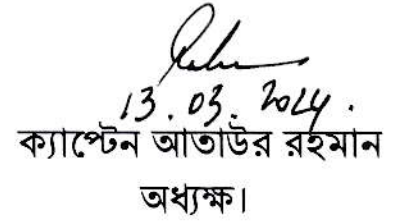 13.03.2024.
ক্যাপ্টেন আতাউর রহমান
অধ্যক্ষ।